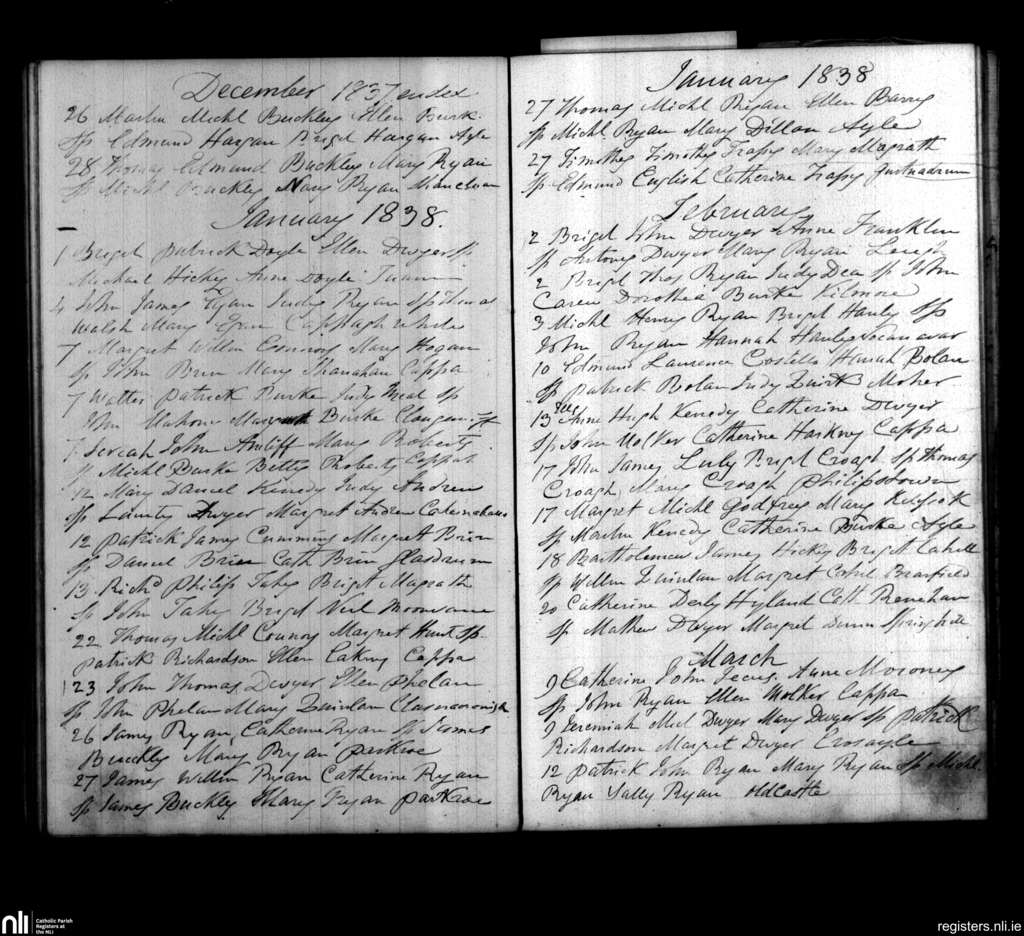 December 1837 ended
26 Martin Michl Buckley Ellen Burk
Sp Edmund Hargan Brigd Hargan Ayle
28 Thomas Edmund Buckley Mary Ryan
Sp Michl Buckley Nancy Ryan
January 1838.
1 Brigd Patrick Doyle Ellen Dwyer Sp
Michael Hickey Anne Doyle
4 John James Egan Judy Ryan Sp Thomas
Walsh Mary Egan Cappagh
7 Margret Willm Connors Mary Hogan
Sp John Brien Mary Shanahan Cappa
7 Walter Patrick Burke Judy Sp
John Mahon Margret Burke
7 John Mary Roberts
Sp Michl Burke Betty Roberts Cappa
12 Mary Daniel Kenedy Judy Andrew
Sp Dwyer Margret Andrew
12 Patrick James Cummins Margret Brien
Sp Daniel Brien Cath Brien
13 Richd Philip Fahy Brigt Magrath
Sp John Fahy Brigd Neil Moonvane
22 Thomas Michl Connors Margret Hunt Sp
Patrick Richardson Ellen Cappa
23 John Thomas Dwyer Ellen Phelan
Sp John Phelan Mary Quinlan
26 James Ryan Catherine Ryan Sp James
Buckley Mary Ryan Parkroe
27 James Willm Ryan Catherine Ryan
Sp James Buckley Mary Ryan Parkroe
January 1838
27 Thomas Michl Ryan Ellen Barry
Sp Michl Ryan Mary Dillon Ayle
27 Timothy Timothy Trassy Mary Magrath
Sp Edmund English Catherine Trassy
February
2 Brigd John Dwyer Anne Franklin
Sp Antony Dwyer Mary Ryan Leugh
2 Brigd Thos Ryan Judy Dea Sp John
Carew Dorothea Burke Kilmore
3 Michl Henry Ryan Brigd Hanly Sp
John Ryan Hannah Hanly
10 Edmund Laurence Costello Hanah Bolan
Sp Patrick Bolan Judy Moher
13 Anne Hugh Kenedy Catherine Dwyer
Sp John Wolker Catherine Harkney Cappa
17 John James Luby Brigd Croagh Sp Thomas
Croagh Mary Croagh Philipstown
17 Margret Michl Godfrey Mary
Sp Martin Kenedy Catherine Burke Ayle
18 Bartholomew James Hickey Briget Cahill
Sp Willm Quinlan Margret Cahil
20 Catherine Derby Hyland Cath Renehan
Sp Mathew Dwyer Margret Dunn Springhill
March
9 Catherine John Anne Moroney
Sp John Ryan Ellen Wolker Cappa
9 Jeremiah Mick Dwyer Mary Dwyer Sp Patrick
Richardson Margret Dwyer Crosayle
12 Patrick John Ryan Mary Ryan Sp Michl
Ryan Sally Ryan oldcastle
nli
Catholic Parish
Registers at
the NLI
registers.nli.ie